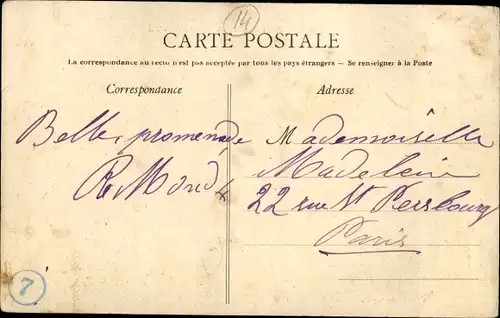 14
CARTE POSTALE
La correspondance au recto n'est pas acceptée par tous les pays étrangers — Se renseigner à la Poste
Correspondance
Adresse
Belle promenade
Mademoiselle
Madelein
22 rue St
Paris
7